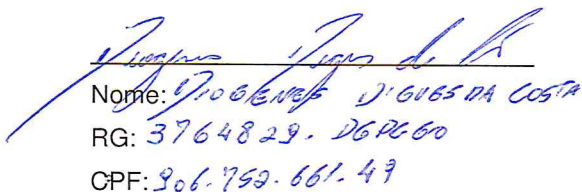 Nome: DIOGENES DIGUES DA COSTA
RG: 3764829. DGPCGO
CPF: 906.752.661.49